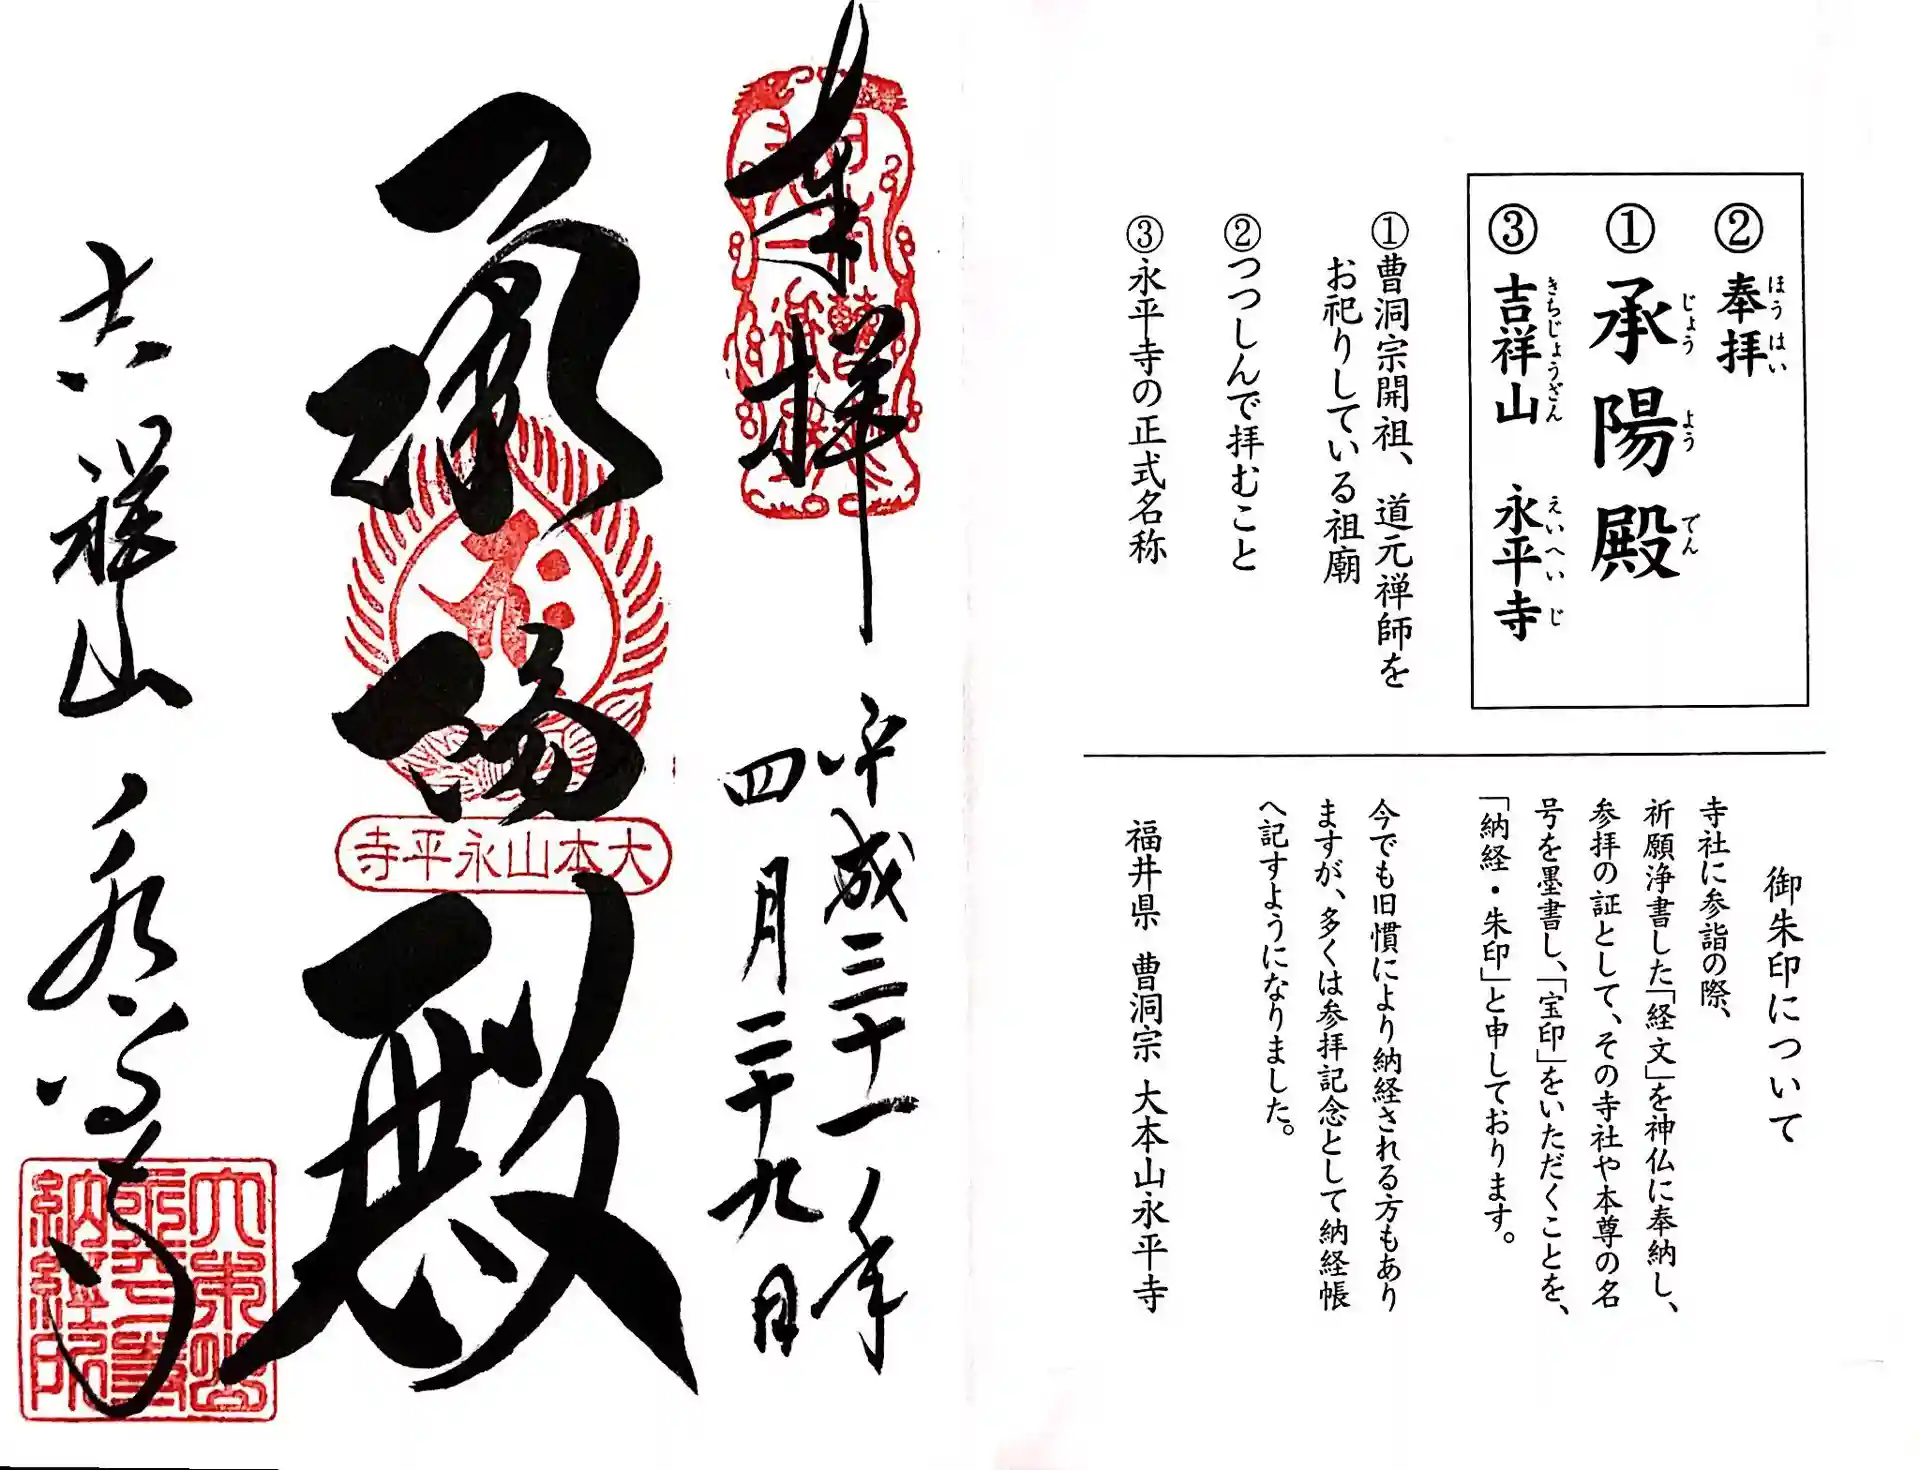 ② 奉拝
ほうはい
① 承陽殿
じょうようでん
③ 吉祥山 永平寺
きちじょうざん えいへいじ
①曹洞宗開祖、道元禅師を
お祀りしている祖廟
②つつしんで拝むこと
③永平寺の正式名称
御朱印について
寺社に参詣の際、
祈願浄書した「経文」を神仏に奉納し、
参拝の証として、その寺社や本尊の名
号を墨書し、「宝印」をいただくことを、
「納経・朱印」と申しております。
今でも旧慣により納経される方もあり
ますが、多くは参拝記念として納経帳
へ記すようになりました。
福井県 曹洞宗 大本山永平寺
奉拝
平成三十一年
四月二十九日
承陽殿
大本山永平寺
吉祥山 永平寺